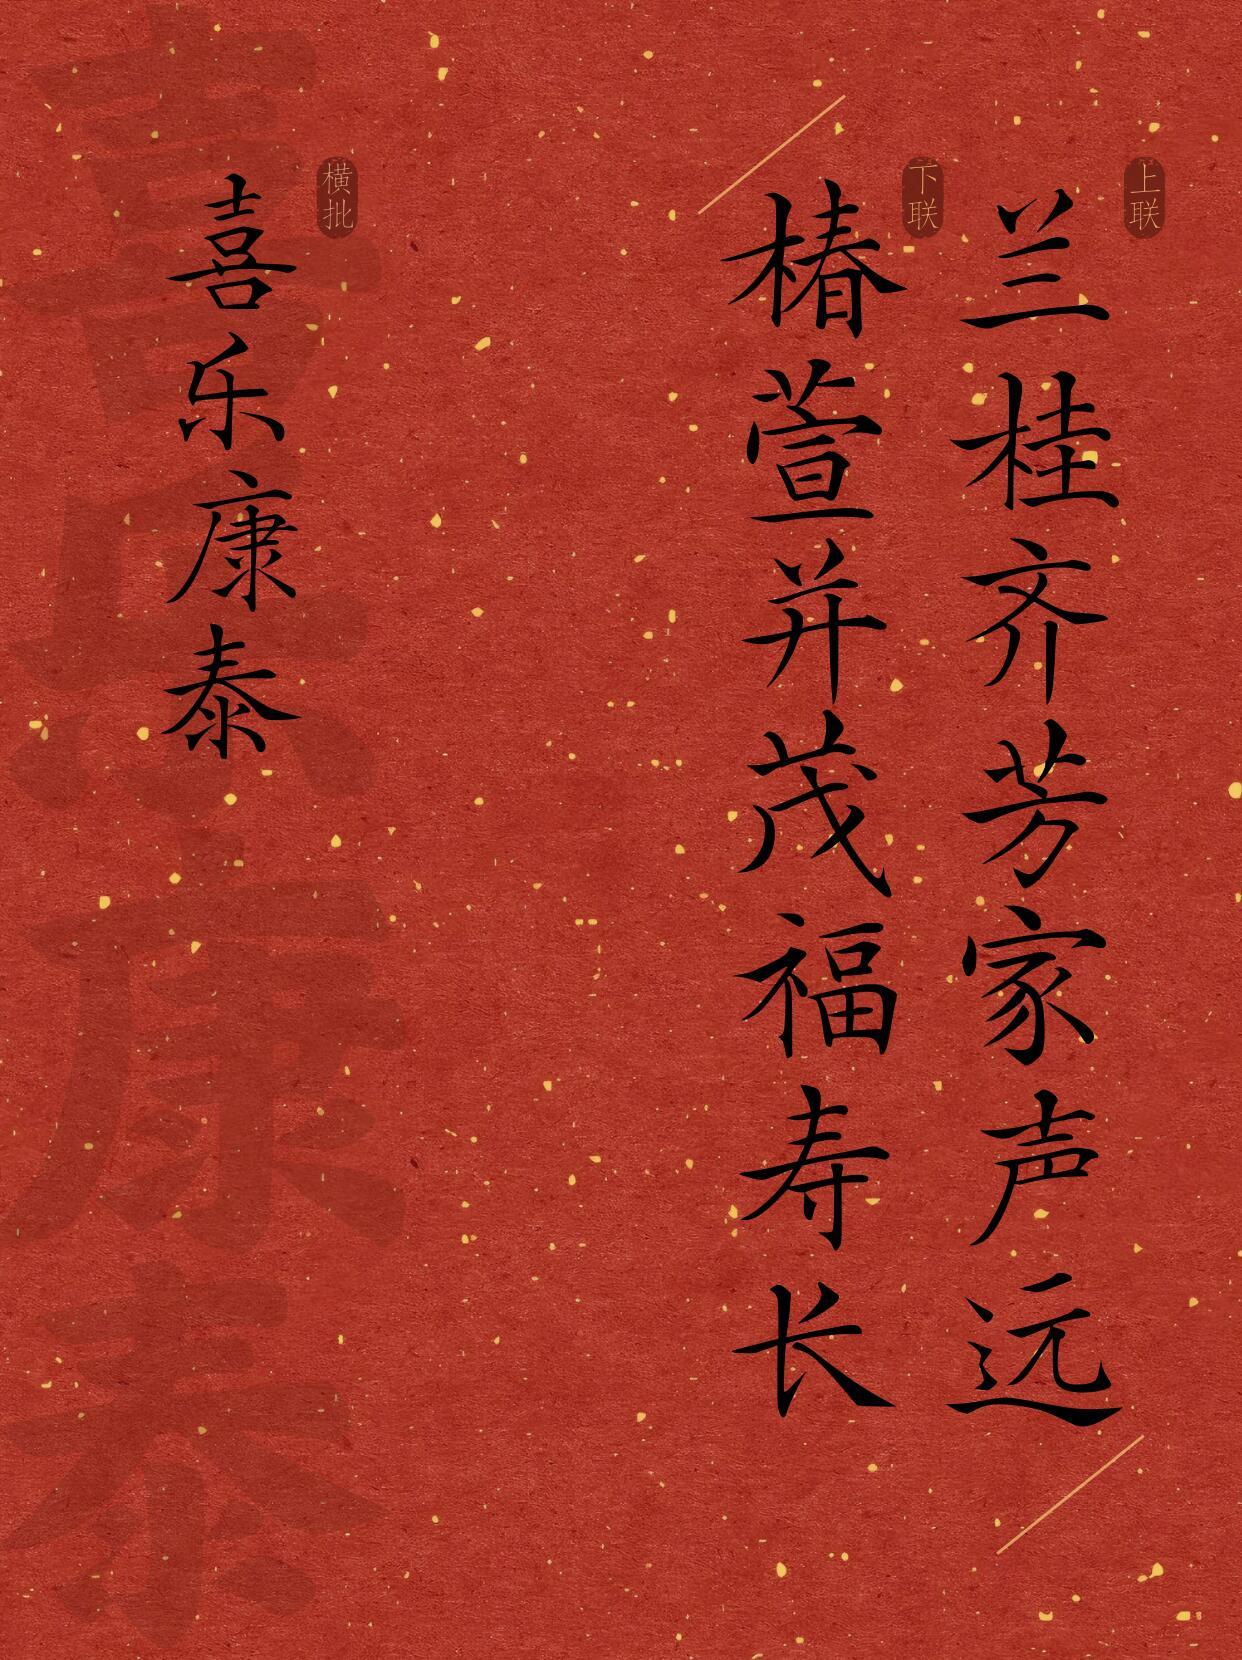 上联
兰桂齐芳家声远
下联
椿萱并茂福寿长
横批
喜乐康泰
喜乐康泰